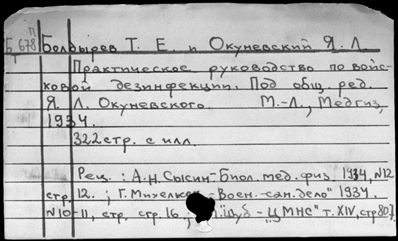 П
Б 678
Болдырев Т. Е. и Окуневский Я. Л.
Практическое руководство по войс-
ковой дезинфекции. Под общ. ред.
Я. Л. Окуневского. М.-Л., Медгиз,
1934.
322 стр. с илл.
Рец.: А.Н. Сысин-Биол. мед. физ. 1934, N12
стр. 12.; Г. "Воен.-сан. дело" 1934.
N10-11, стр. стр. 16, - "ЦМНС" т. XIV, стр 80]